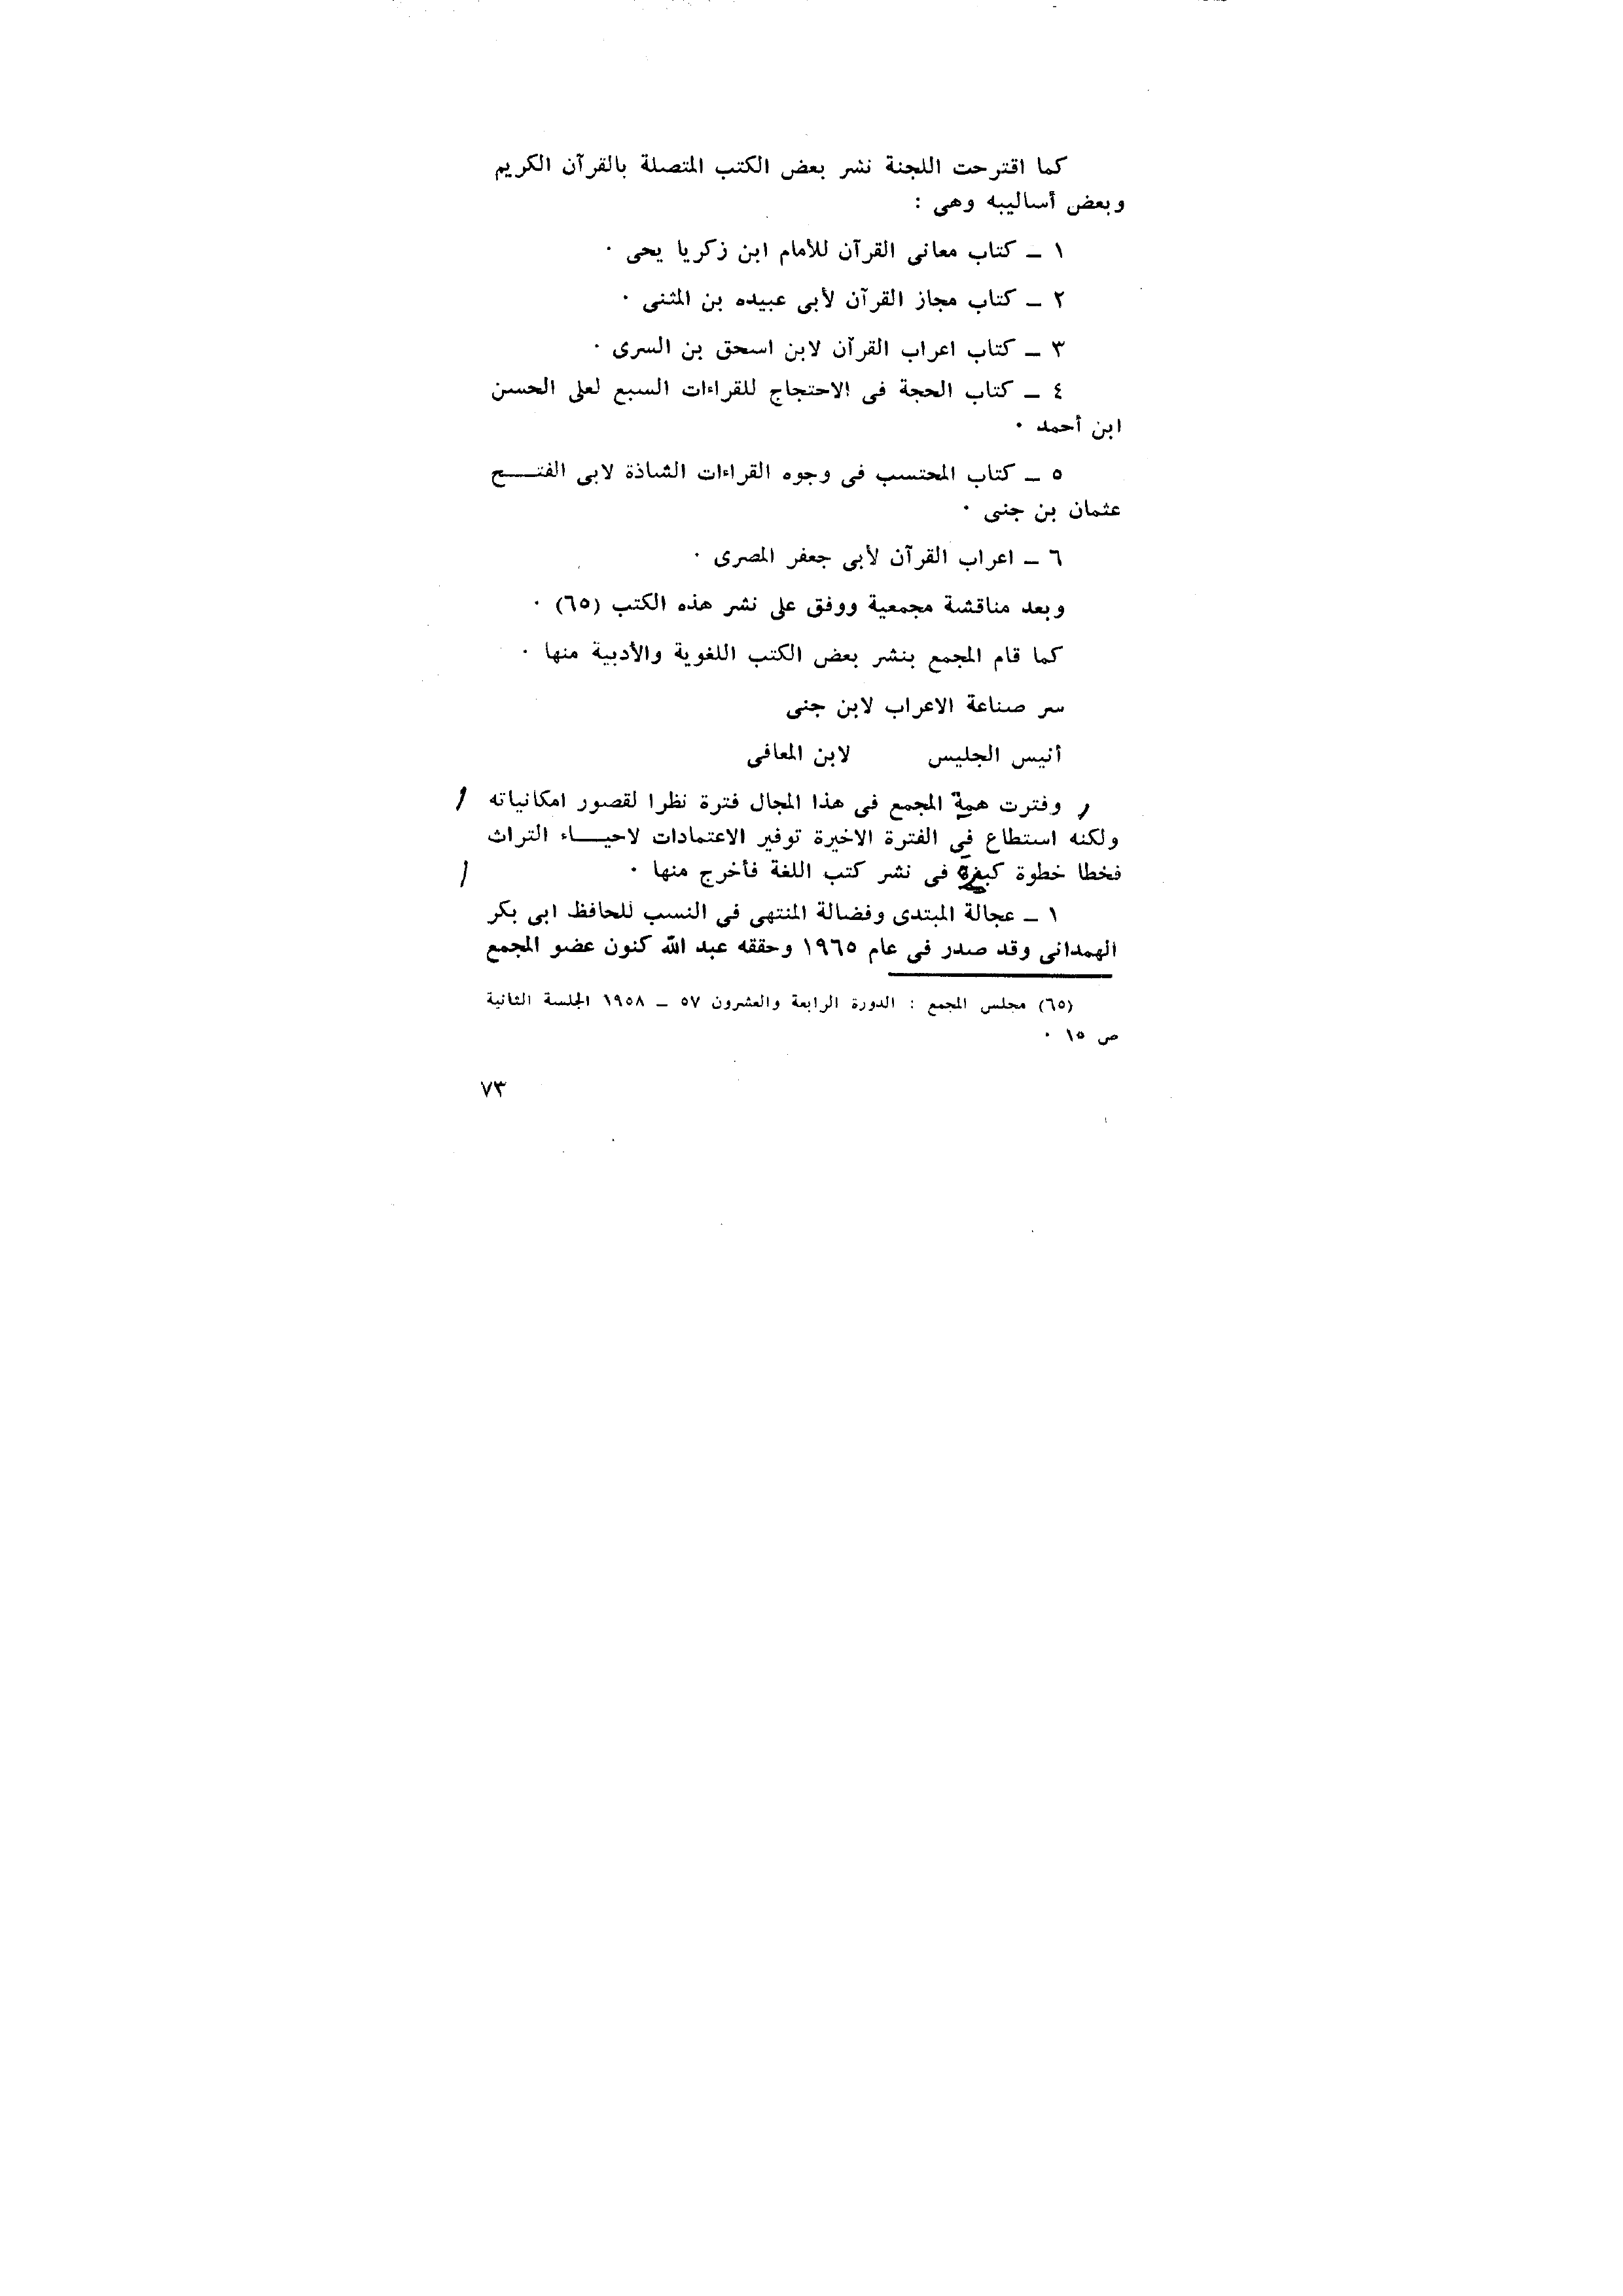 كما اقترحت اللجنة نشر بعض الكتب المتصلة بالقرآن الكريم
وبعض أساليبه وهى :
١ ـ كتاب معانى القرآن للأمام ابن زكريا يحى ٠
٢ ـ كتاب مجاز القرآن لأبى عبيده بن المثنى ٠
٣ ـ كتاب اعراب القرآن لابن اسحق بن السرى ٠
٤ ـ كتاب الحجة فى الاحتجاج للقراءات السبع لعلى الحسن
ابن أحمد ٠
٥ ـ كتاب المحتسب فى وجوه القراءات الشاذة لابى الفتـــح
عثمان بن جنى ٠
٦ ـ اعراب القرآن لأبى جعفر المصرى ٠
وبعد مناقشة مجمعية ووفق على نشر هذه الكتب (٦٥) ٠
كما قام المجمع بنشر بعض الكتب اللغوية والأدبية منها ٠
سر صناعة الاعراب لابن جنى
أنيس الجليس لابن المعافى
وفترت همة المجمع فى هذا المجال فترة نظرا لقصور امكانياته
ولكنه استطاع في الفترة الاخيرة توفير الاعتمادات لاحيـــاء التراث
فخطا خطوة كبيرة فى نشر كتب اللغة فأخرج منها ٠
١ ـ عجالة المبتدى وفضالة المنتهى فى النسب للحافظ ابى بكر
الهمدانى وقد صدر فى عام ١٩٦٥ وحققه عبد الله كنون عضو المجمع
(٦٥) مجلس المجمع : الدورة الرابعة والعشرون ٥٧ ـ ١٩٥٨ الجلسة الثانية
ص ١٥ ٠
٧٣